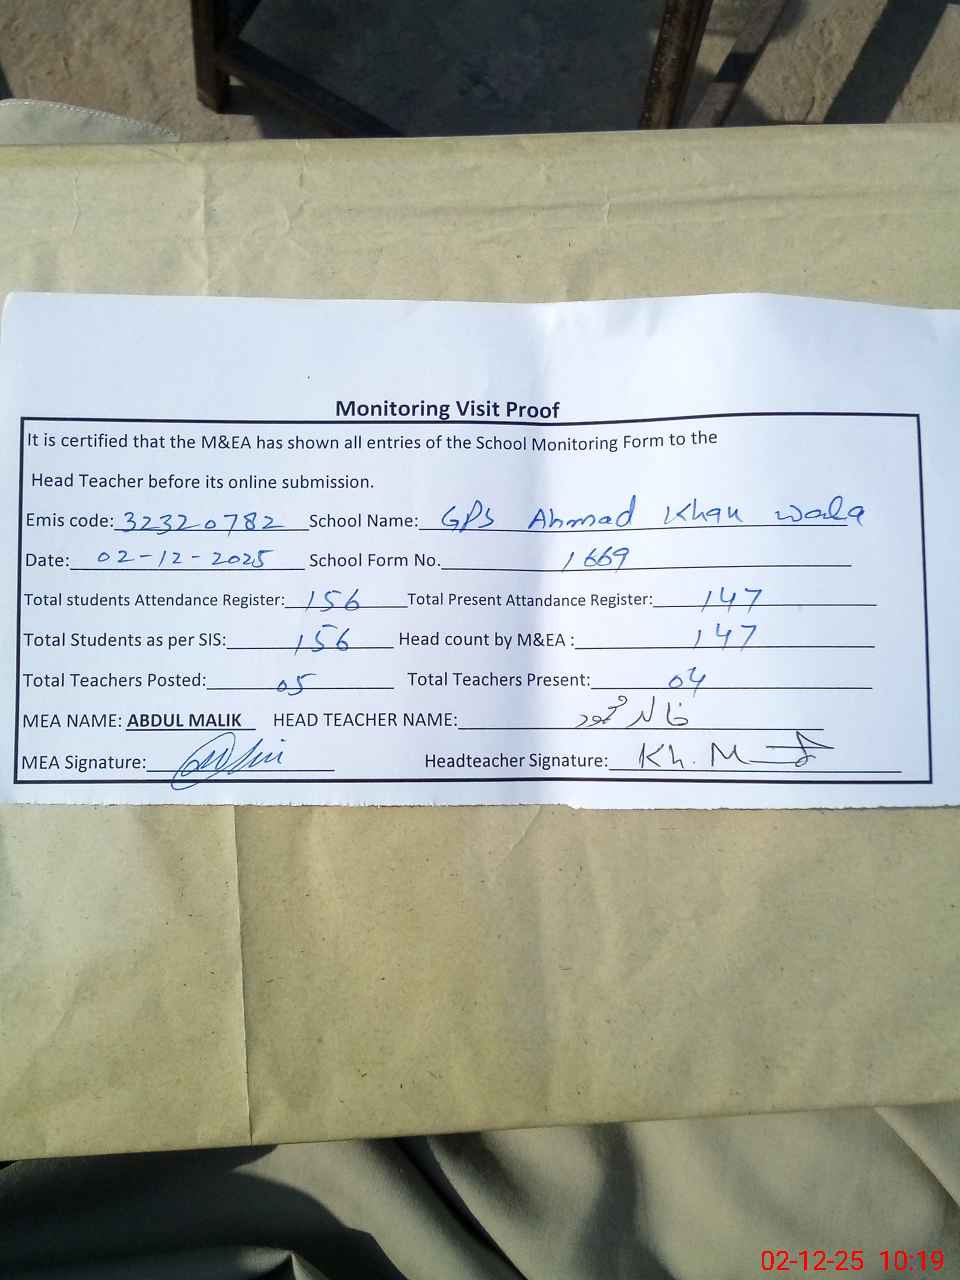 Monitoring Visit Proof
It is certified that the M&EA has shown all entries of the School Monitoring Form to the
Head Teacher before its online submission.
Emis code: 32320782 School Name: GPS Ahmad Khan wala
Date: 02-12-2025 School Form No. 1669
Total students Attendance Register: 156 Total Present Attandance Register: 147
Total Students as per SIS: 156 Head count by M&EA : 147
Total Teachers Posted: 05 Total Teachers Present: 04
MEA NAME: ABDUL MALIK HEAD TEACHER NAME: خالد محمود
MEA Signature: Headteacher Signature: Kh. M
02-12-25 10:19